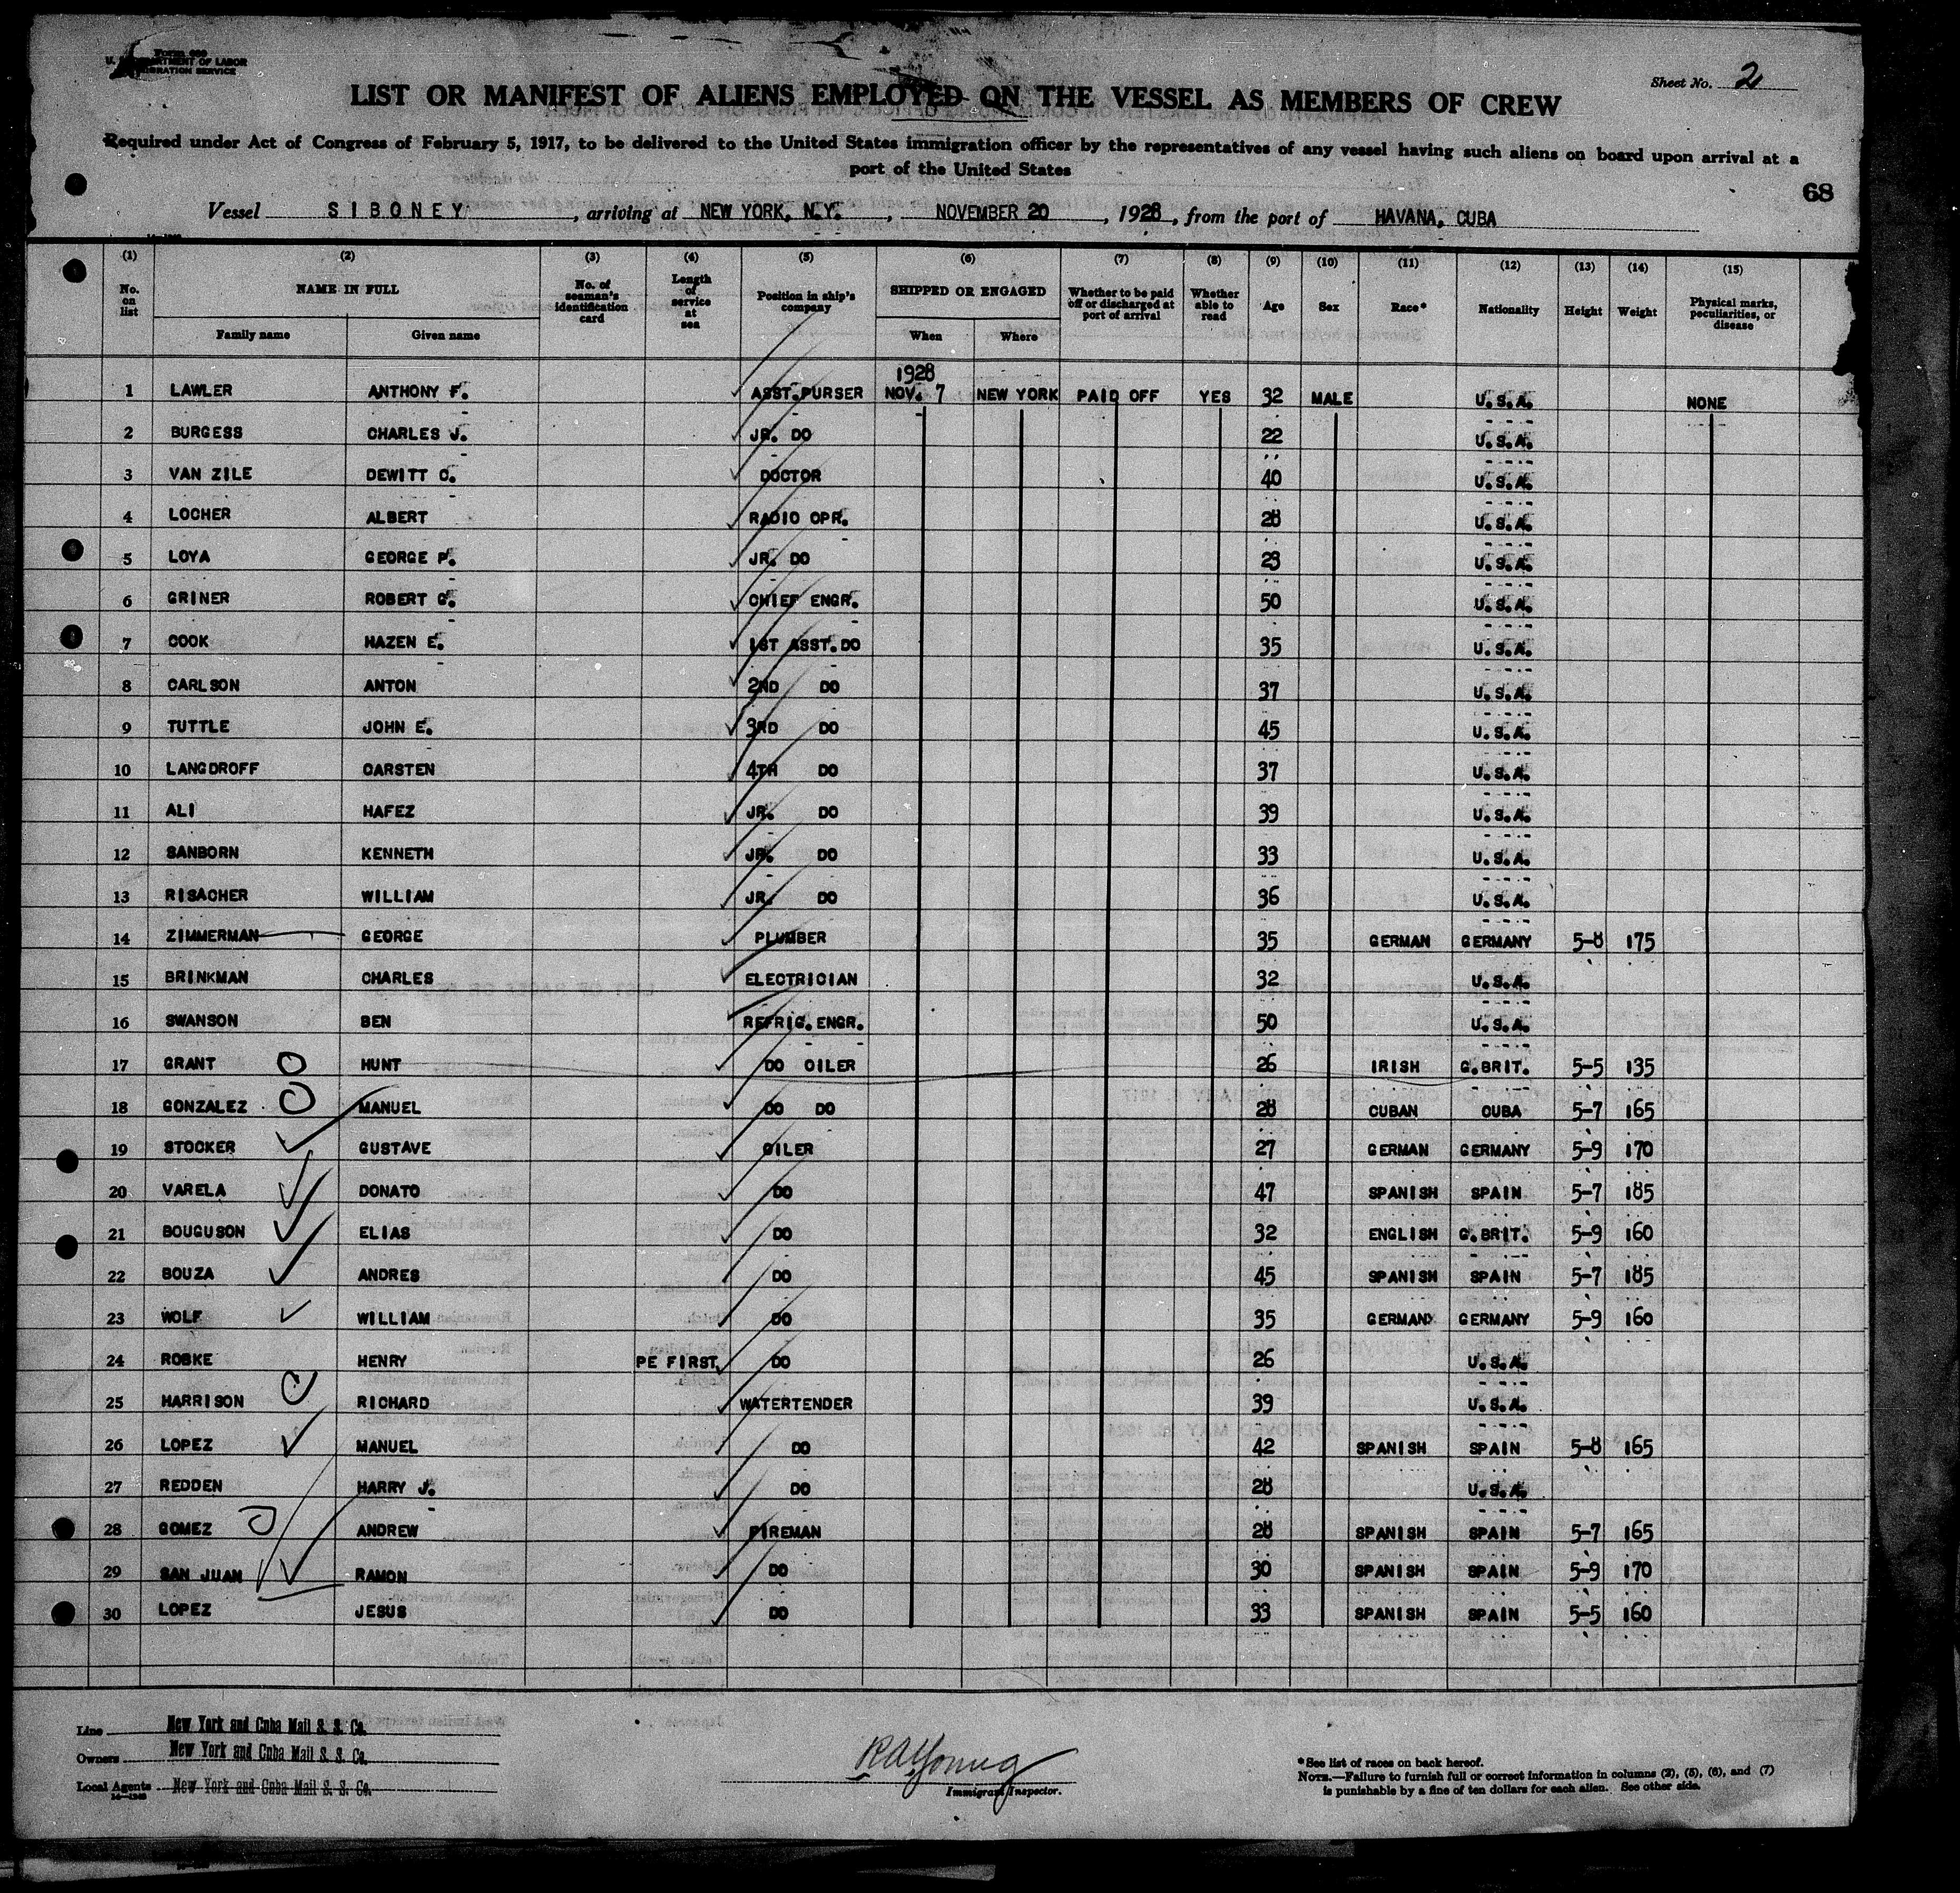 Form 680
U. S. DEPARTMENT OF LABOR
IMMIGRATION SERVICE
Sheet No. 2
LIST OR MANIFEST OF ALIENS EMPLOYED ON THE VESSEL AS MEMBERS OF CREW
Required under Act of Congress of February 5, 1917, to be delivered to the United States immigration officer by the representatives of any vessel having such aliens on board upon arrival at a
port of the United States
68
Vessel SIBONEY, arriving at NEW YORK, N.Y., NOVEMBER 20, 1928, from the port of HAVANA, CUBA
(1) (2) (3) (4) (5) (6) (7) (8) (9) (10) (11) (12) (13) (14) (15)
No. on list NAME IN FULL No. of seaman's identification card Length of service at sea Position in ship's company SHIPPED OR ENGAGED Whether to be paid off or discharged at port of arrival Whether able to read Age Sex Race* Nationality Height Weight Physical marks, peculiarities, or disease
Family name Given name When Where
1928
1 LAWLER ANTHONY F. ASST.PURSER NOV. 7 NEW YORK PAID OFF YES 32 MALE U.S.A. NONE
2 BURGESS CHARLES J. JR. DO 22 U.S.A.
3 VAN ZILE DEWITT C. DOCTOR 40 U.S.A.
4 LOCHER ALBERT RADIO OPR. 28 U.S.A.
5 LOYA GEORGE P. JR. DO 23 U.S.A.
6 GRINER ROBERT G. CHIEF ENGR. 50 U.S.A.
7 COOK HAZEN E. 1ST ASST.DO 35 U.S.A.
8 CARLSON ANTON 2ND DO 37 U.S.A.
9 TUTTLE JOHN E. 3RD DO 45 U.S.A.
10 LANGDROFF CARSTEN 4TH DO 37 U.S.A.
11 ALI HAFEZ JR. DO 39 U.S.A.
12 SANBORN KENNETH JR. DO 33 U.S.A.
13 RISACHER WILLIAM JR. DO 36 U.S.A.
14 ZIMMERMAN GEORGE PLUMBER 35 GERMAN GERMANY 5-8 175
15 BRINKMAN CHARLES ELECTRICIAN 32 U.S.A.
16 SWANSON BEN REFRIG.ENGR. 50 U.S.A.
17 GRANT HUNT DO OILER 26 IRISH G.BRIT. 5-5 135
18 GONZALEZ MANUEL DO DO 28 CUBAN CUBA 5-7 165
19 STOCKER GUSTAVE OILER 27 GERMAN GERMANY 5-9 170
20 VARELA DONATO DO 47 SPANISH SPAIN 5-7 185
21 BOUGUSON ELIAS DO 32 ENGLISH G.BRIT. 5-9 160
22 BOUZA ANDRES DO 45 SPANISH SPAIN 5-7 185
23 WOLF WILLIAM DO 35 GERMANY GERMANY 5-9 160
24 ROBKE HENRY PE FIRST. DO 26 U.S.A.
25 HARRISON RICHARD WATERTENDER 39 U.S.A.
26 LOPEZ MANUEL DO 42 SPANISH SPAIN 5-8 165
27 REDDEN HARRY J. DO 28 U.S.A.
28 GOMEZ ANDREW FIREMAN 28 SPANISH SPAIN 5-7 165
29 SAN JUAN RAMON DO 30 SPANISH SPAIN 5-9 170
30 LOPEZ JESUS DO 33 SPANISH SPAIN 5-5 160
Line New York and Cuba Mail S. S. Co.
Owners New York and Cuba Mail S. S. Co.
Local Agents New York and Cuba Mail S. S. Co.
R A Young
Immigrant Inspector.
*See list of races on back hereof.
NOTE.—Failure to furnish full or correct information in columns (2), (5), (6), and (7)
is punishable by a fine of ten dollars for each alien. See other side.